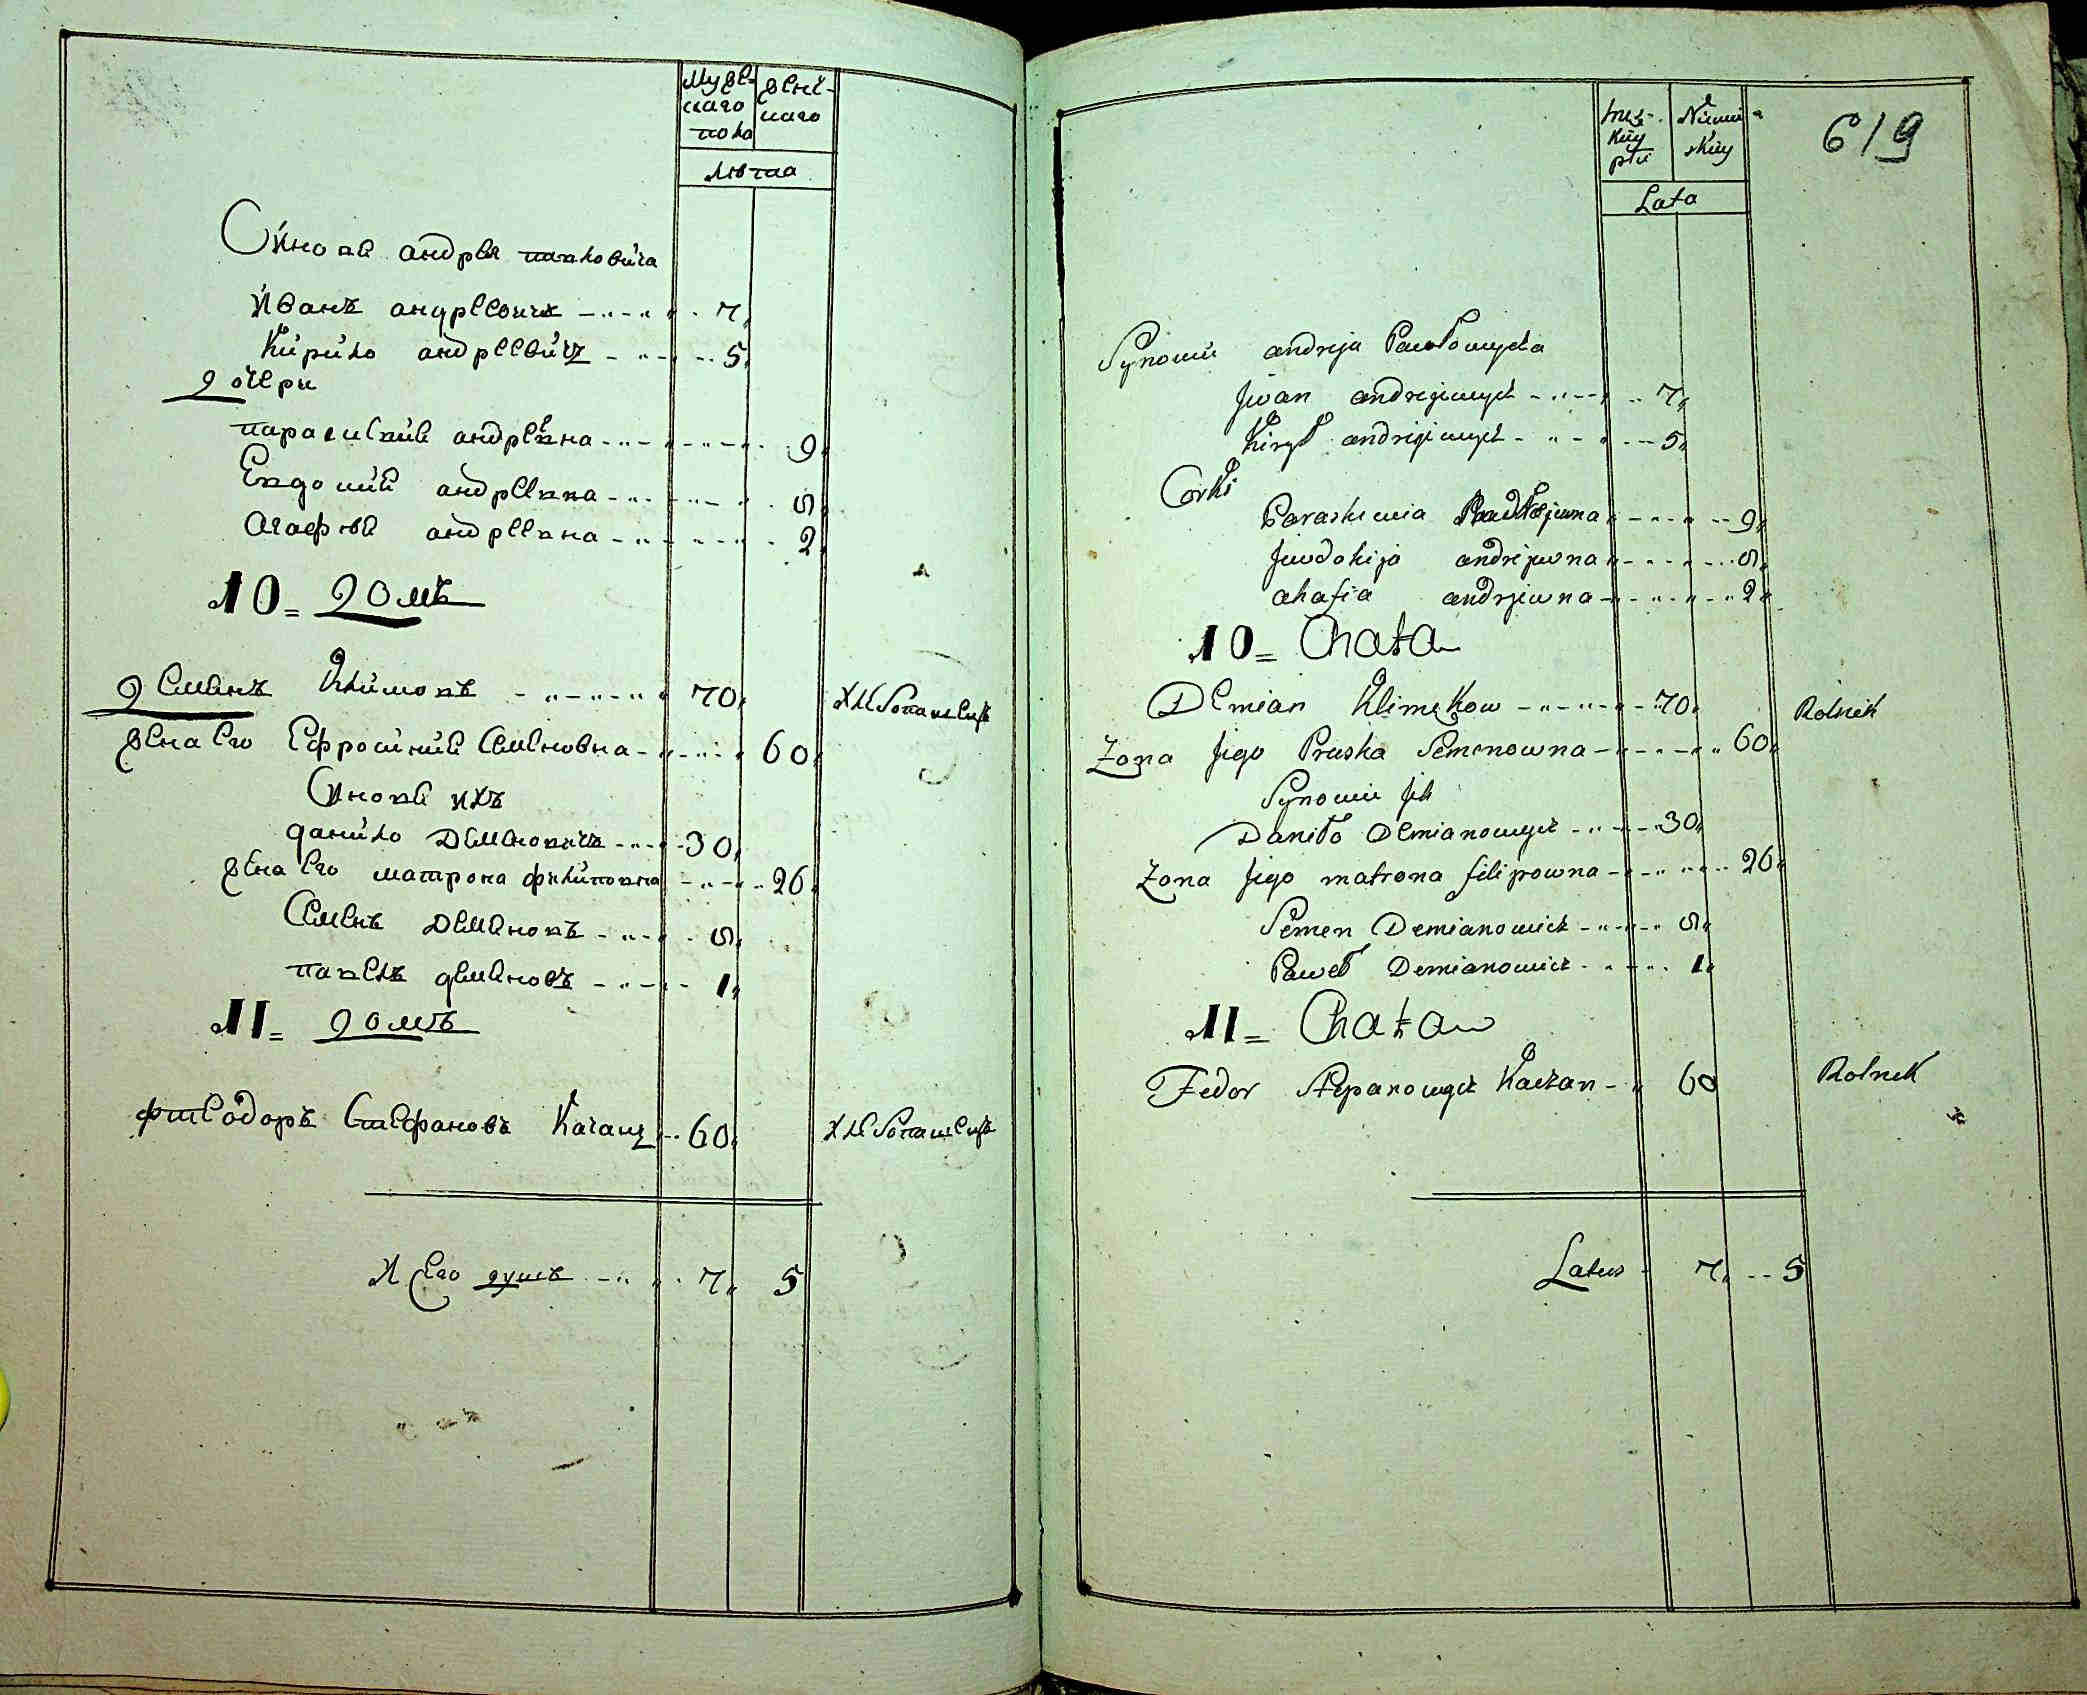 Муже-
скаго
пола
жені-
скаго
лѣтаа
Синове андрѣя павловича
Иванъ андреевичъ 7
Кирило андреевичъ 5
дочери
параскевія андреевна 9
Евдокия андреевна 5
Агафия андреевна 2
10= домъ
Демянъ Климовъ 70 хлѣбопашецъ
жена его Ефросиния Семеновна 60
Синове ихъ
данило Демяновичъ 30
жена его матрона филиповна 26
Семенъ Демяновъ 5
павелъ демяновъ 1
11= домъ
Фтеодоръ Стефановъ Качанъ 60 хлѣбопашецъ
Всего душъ 7 5
619
Muż-
kiiy
płci
Lata
Synowie andrija Pawłowycza
Jwan andrijewycz 7
Kiryło andrijewycz 5
Corki
Paraskewia 9
Jewdokija andrijewna 5
ahafia andrijewna 2
10= Chata
Demian Klimekow 70 Rolnik
Zona Jego Pruska Semenowna 60
Synowie Jch
Daniło Demianowycz 30
Zona Jego matrona filipowna 26
Semen Demianowicz 5
Paweł Demianowicz 1
11= Chata
Fedor Stepanowycz Kaczan 60 Rolnik
Latus 7 5